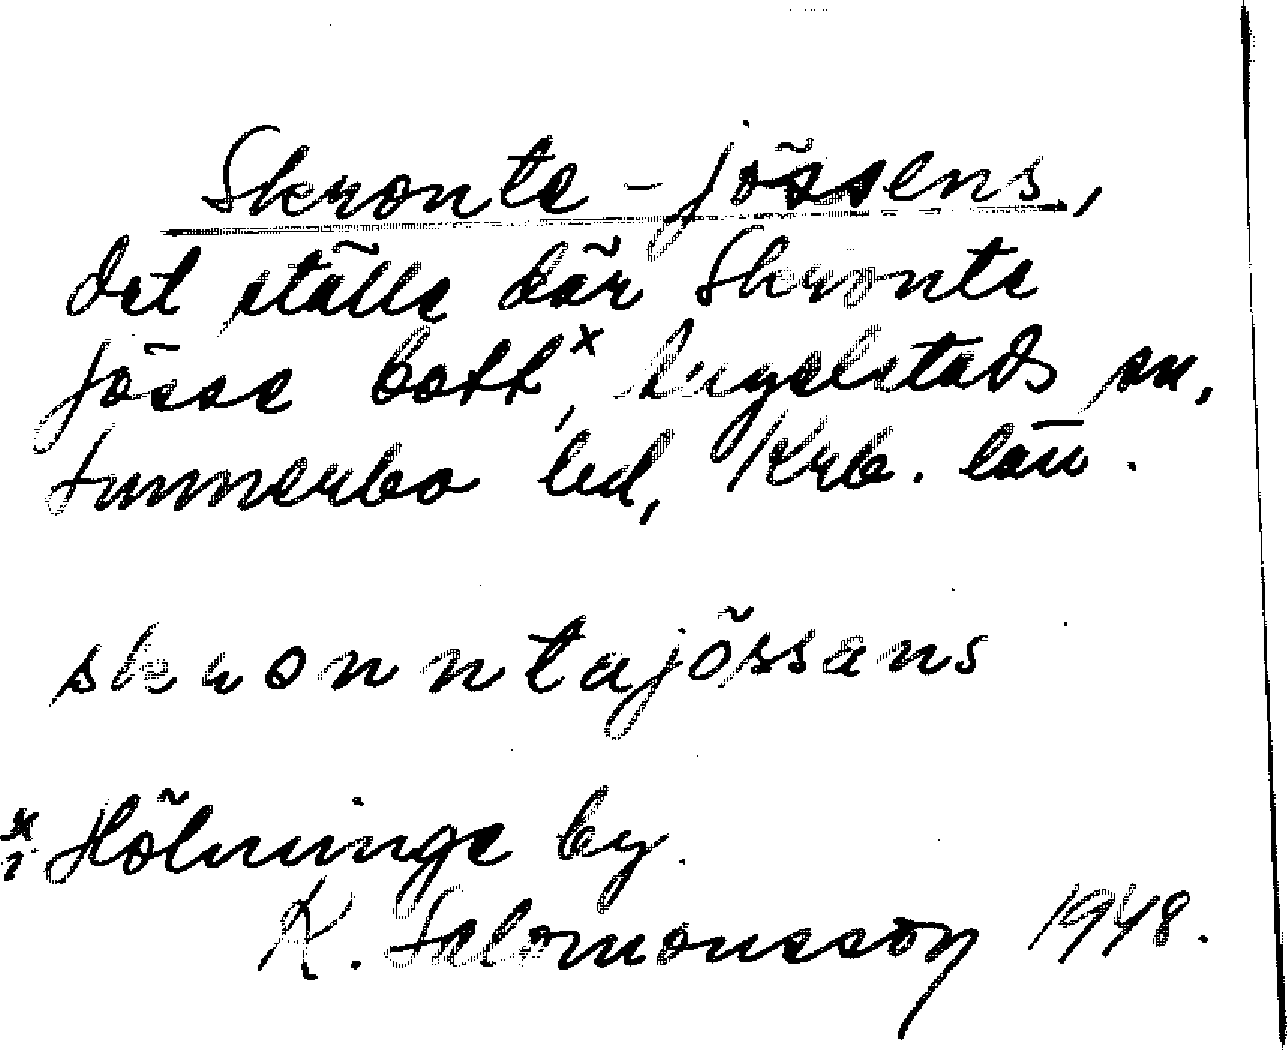 Skronte-jössens,
det ställe där Skronte
jösse bott,ˣ Angelstads sn,
Sunnerbo hd, Krb. län.
skronntajössans
ˣ i Hölminge by.
K. Salomonsson 1948.